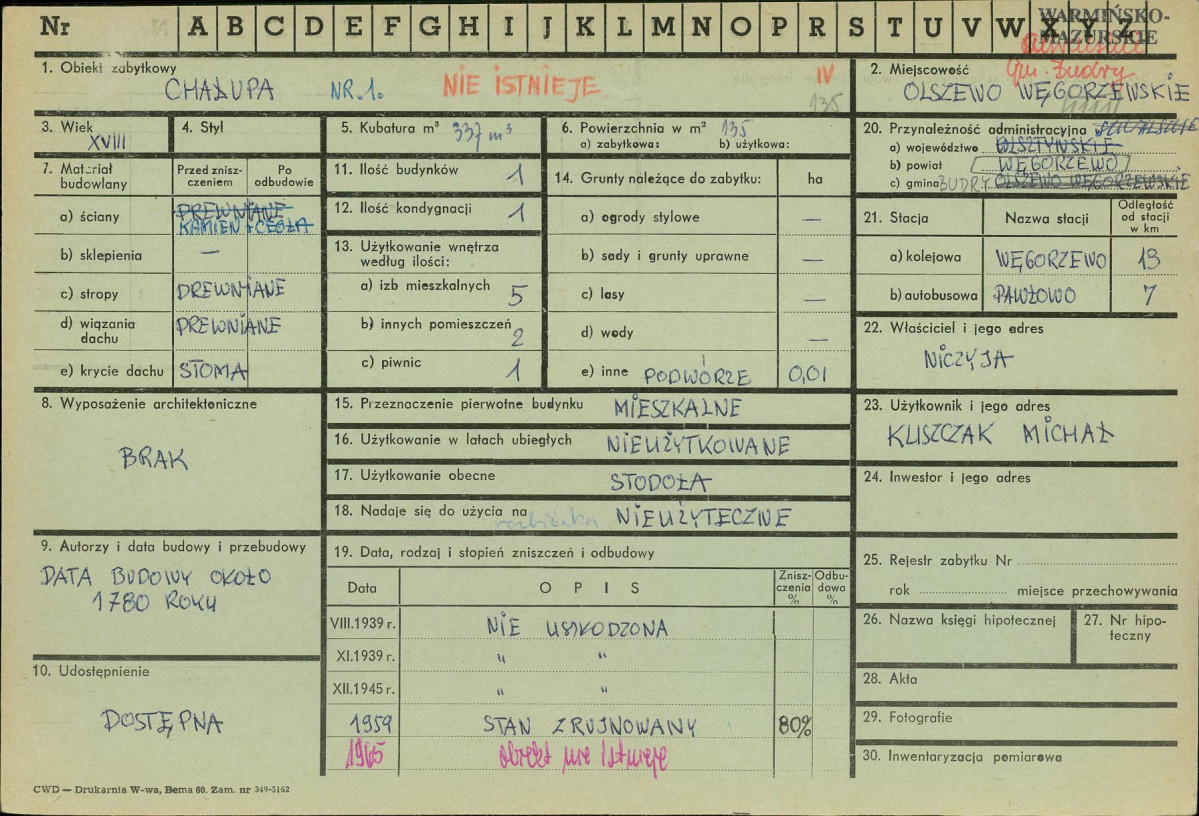 Nr A B C D E F G H I J K L M N O P R S T U V W X Y Z
WARMIŃSKO-
MAZURSKIE
1. Obiekt zabytkowy
CHAŁUPA NR.1. NIE ISTNIEJE
IV
135
2. Miejscowość
Gm. Budry
OLSZEWO WĘGORZEWSKIE
3. Wiek
XVIII
4. Styl
5. Kubatura m³ 337 m³
6. Powierzchnia w m² 135
a) zabytkowa: b) użytkowa:
20. Przynależność administracyjna SUWALSKIE
a) województwo OLSZTYŃSKIE
b) powiat WĘGORZEWO
c) gmina BUDRY OLSZEWO WĘGORZEWSKIE
7. Materiał budowlany
Przed zniszczeniem
Po odbudowie
a) ściany DREWNIANE
KAMIEŃ + CEGŁA
b) sklepienia —
c) stropy DREWNIANE
d) wiązania dachu DREWNIANE
e) krycie dachu SŁOMA
11. Ilość budynków 1
12. Ilość kondygnacji 1
13. Użytkowanie wnętrza
według ilości:
a) izb mieszkalnych 5
b) innych pomieszczeń 2
c) piwnic 1
14. Grunty należące do zabytku: ha
a) ogrody stylowe —
b) sady i grunty uprawne —
c) lasy —
d) wody —
e) inne PODWÓRZE 0,01
21. Stacja Nazwa stacji Odległość od stacji w km
a) kolejowa WĘGORZEWO 13
b) autobusowa PAWŁOWO 7
22. Właściciel i jego adres
NICZYJA
8. Wyposażenie architektoniczne
BRAK
15. Przeznaczenie pierwotne budynku MIESZKALNE
16. Użytkowanie w latach ubiegłych NIEUŻYTKOWANE
17. Użytkowanie obecne STODOŁA
18. Nadaje się do użycia na NIEUŻYTECZNE
23. Użytkownik i jego adres
KUSZCZAK MICHAŁ
24. Inwestor i jego adres
9. Autorzy i data budowy i przebudowy
DATA BUDOWY OKOŁO
1780 ROKU
19. Data, rodzaj i stopień zniszczeń i odbudowy
Data OPIS Zniszczenia % Odbudowa %
VIII.1939 r. NIE USZKODZONA
XI.1939 r. " "
XII.1945 r. " "
1959 STAN ZRUJNOWANY 80%
1965 obiekt nie istnieje
25. Rejestr zabytku Nr
rok miejsce przechowywania
26. Nazwa księgi hipotecznej
27. Nr hipoteczny
10. Udostępnienie
DOSTĘPNA
28. Akta
29. Fotografie
30. Inwentaryzacja pomiarowa
CWD — Drukarnia W-wa, Bema 60. Zam. nr 349-5162